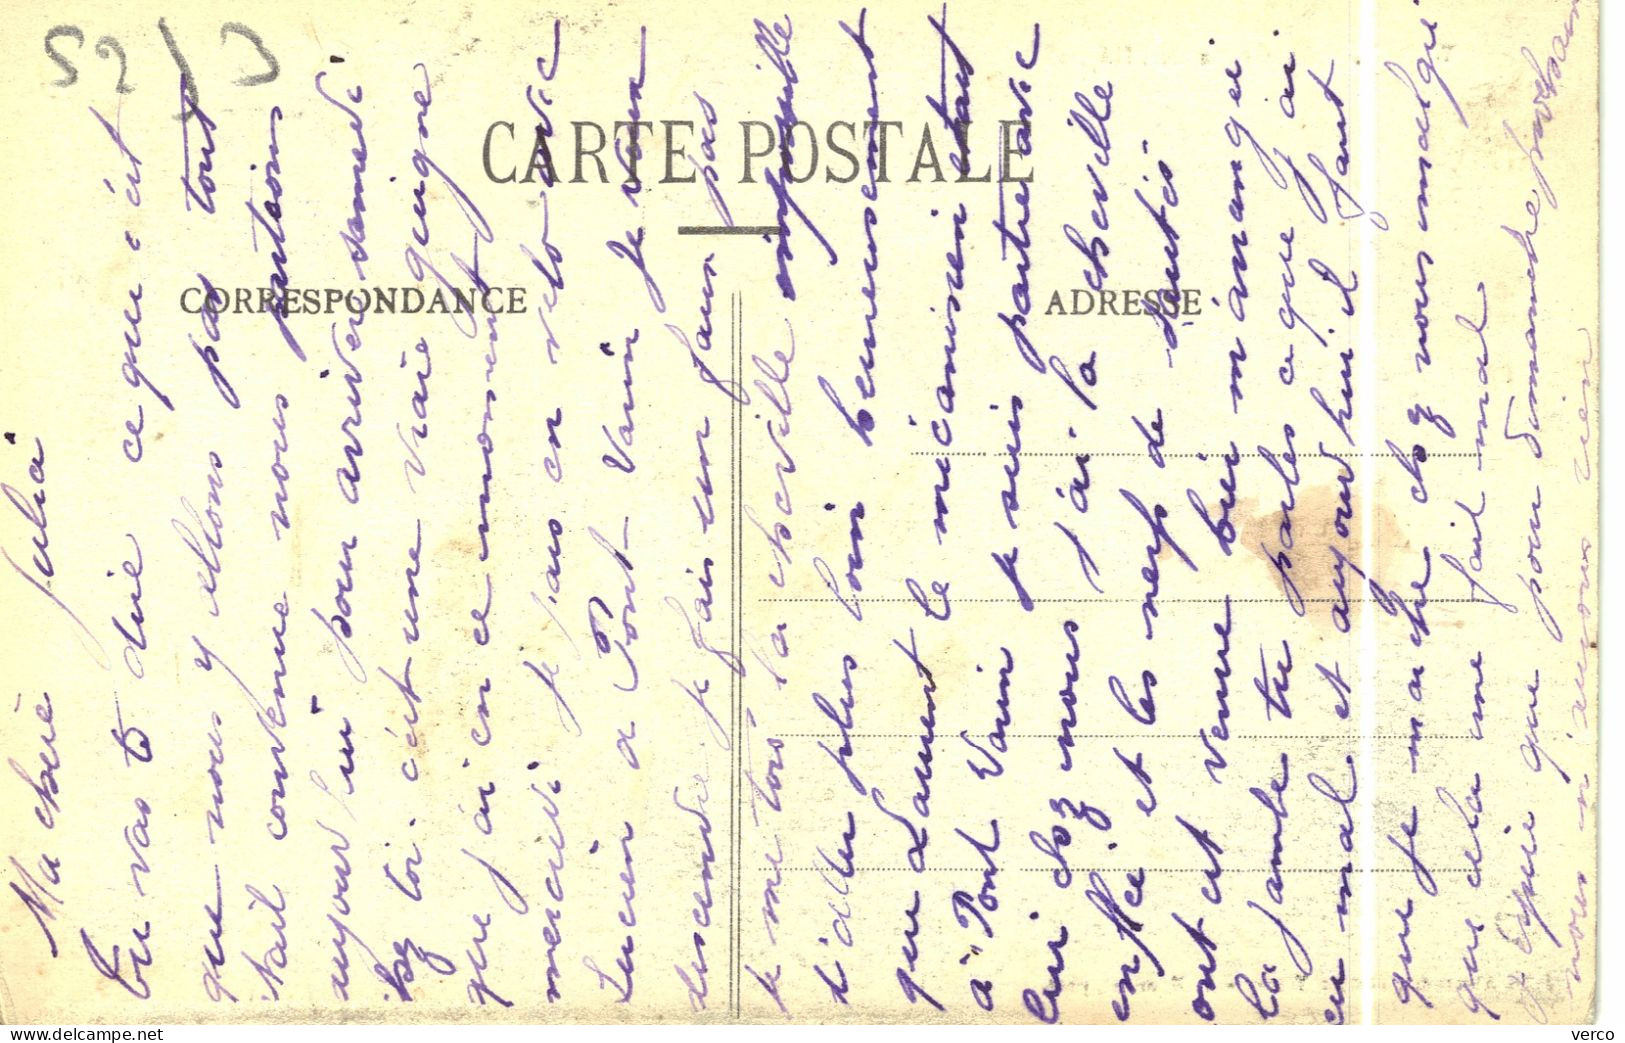 52 / 3
CARTE POSTALE
CORRESPONDANCE
ADRESSE
Ma chère Julia
Tu vas te dire ce que c'ét
que nous y allons pas tout
était convenue nous partions
aujourd'hui pour arriver samedi
chez toi. c'ét une vraie guigne
que j'ai en ce moment
mercredi je vais en velo avec
Lucien a Pont Varin je veux
descendre je fais un faux pas
je me tors la cheville impossible
d'aller plus loin heureusement
que Laurent le mécanicien etait
à Pont Varin je suis partie avec
lui chez nous j'ai la cheville
enflée et les nerfs de
ont est venue hier m'arranger
la jambe tu parles ce que j'ai
eu mal et aujourd'hui il faut
que je marche chez nous malgré
que cela me fait mal
j'espère que pour dimanche prochain
nous n'aurons rien
verco